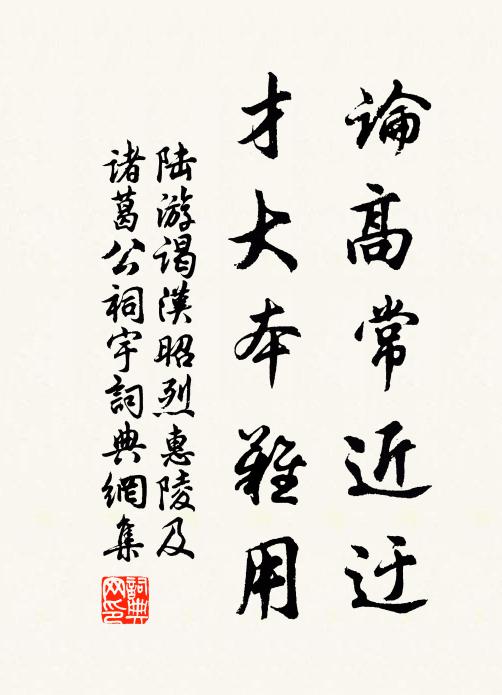 論高常近迂
才大本難用
陆游谒漢昭烈惠陵及
诸葛公祠宇詞典網集
詞典
网印